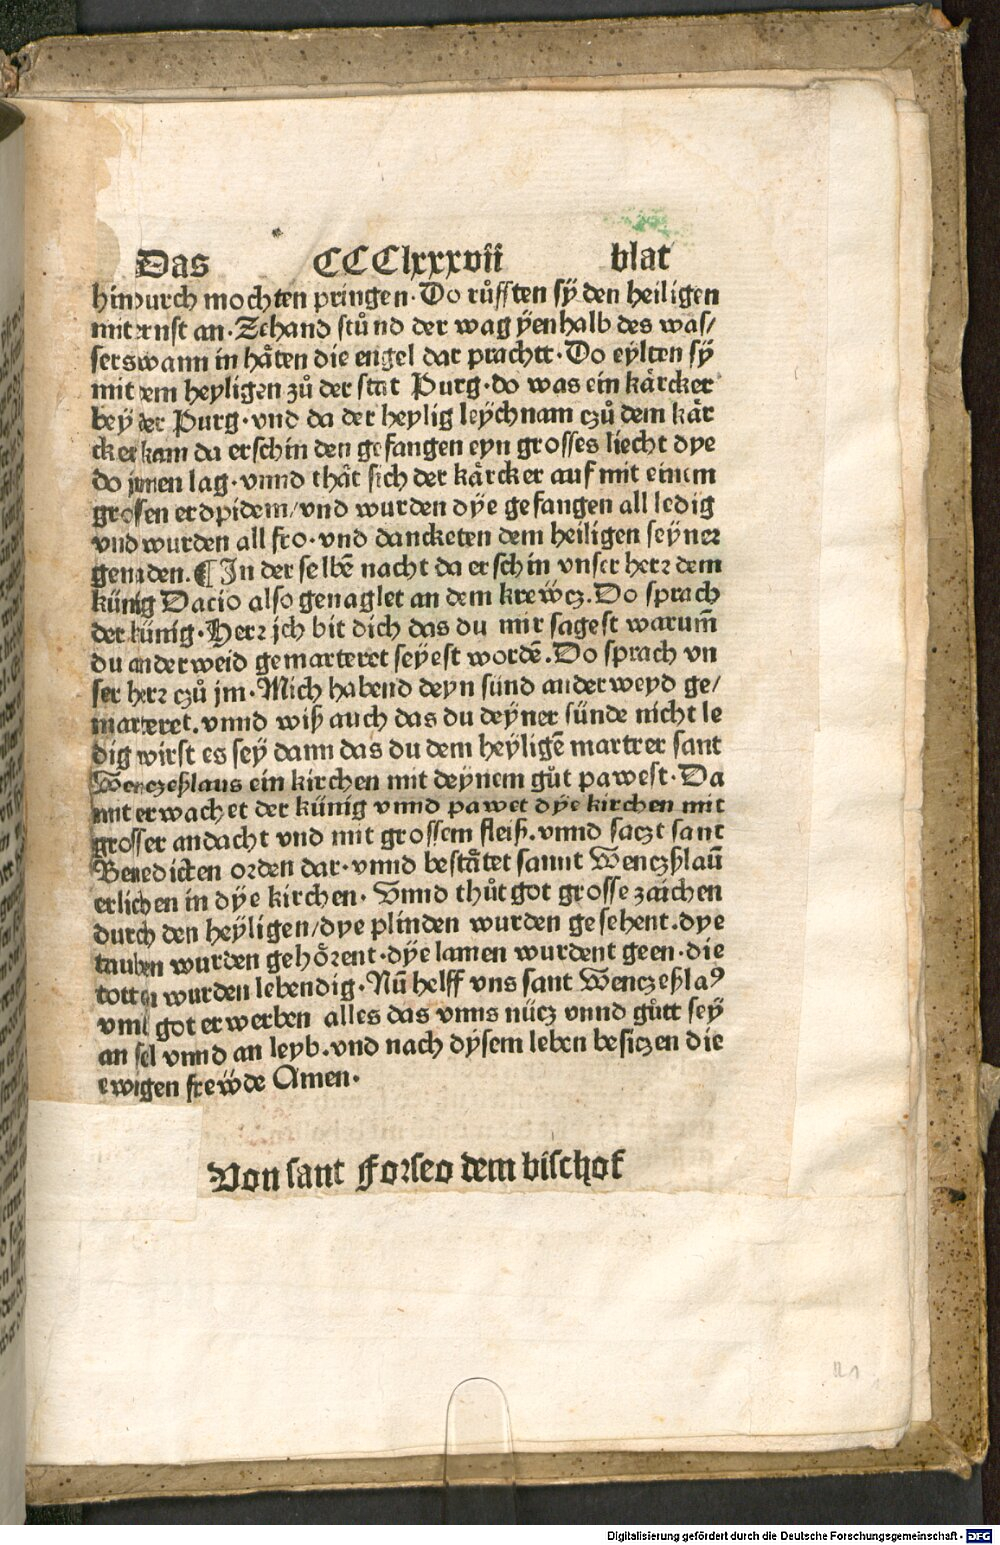 Das CCClxxxvii blat
hindurch mochten pringen. Do růfften sÿ den heiligen
mit ernst an. Zehand stůnd der wag ÿenhalb des was/
sers wann in häten die engel dar prachtt. Do eylten sÿ
mit dem heyligen zů der stat Purg. do was ein kärcker
beÿ der Purg. vnd da der heylig leÿchnam czů dem kär
cker kam da erschin den gefangen eyn grosses liecht dye
do jnnen lag. vnnd thät sich der kärcker auf mit einem
grossen erdpidem/vnd wurden dÿe gefangen all ledig
vnd wurden all fro. vnd dancketen dem heiligen seÿner
genaden. ¶ In der selbē nacht da erschin vnser herr dem
künig Dacio also genaglet an dem krewcz. Do sprach
der künig. Herr jch bit dich das du mir sagest warum̄
du anderweid gemarteret seÿest wordē. Do sprach vn
ser herr czů jm. Mich habend deyn sünd anderweyd ge/
marteret. vnnd wiß auch das du deÿner sünde nicht le
dig wirst es seÿ dann das du dem heÿligē martrer sant
Wenczeßlaus ein kirchen mit deÿnem gůt pawest. Da
mit erwachet der künig vnnd pawet dÿe kirchen mit
grosser andacht vnd mit grossem fleiß. vnnd saczt sant
Benedicten orden dar. vnnd bestätet sannt Wenczßlaū
erlichen in dÿe kirchen. Vnnd thůt got grosse zaichen
durch den heÿligen/dye plinden wurden gesehent. dye
tauben wurden gehörent. dÿe lamen wurdent geen. die
totten wurden lebendig. Nū helff vns sant Wenczeßlaꝰ
vmb got erwerben alles das vnns nücz vnnd gůtt seÿ
an sel vnnd an leyb. vnd nach dÿsem leben besiczen die
ewigen frewde Amen.
Von sant Forseo dem bischof
Digitalisierung gefördert durch die Deutsche Forschungsgemeinschaft - DFG